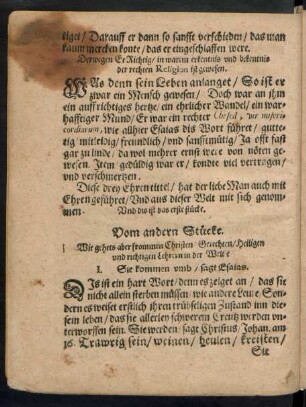 tiget / Darauff er dann so sanffte verschieden / das man
kaum mercken konte / das er eingeschlaffen were.
Derwegen Er Richtig / in warem erkentnis vnd bekentnis
der rechten Religion ist gewesen.
WAs denn sein Leben anlanget / So ist er
zwar ein Mensch gewesen / Doch war an jhm
ein auffrichtiges hertze / ein ehrlicher Wandel / ein war-
haffteiger Mund / Er war ein rechter Chesed, vir miseri-
cordiarum, wie allhier Esaias dis Wort führet / gutte-
tig mitleidig / freundlich / vnd sanfftmütig / Ja offt fast
gar zu linde / da wol mehrer ernst were von nöten ge-
wesen. Item gedüldig war er / kondte viel vertragen /
vnd verschmertzen.
Diese drey Ehrentittel / hat der liebe Man auch mit
Ehren geführet / Vnd aus dieser Welt mit sich genom-
men. Vnd dis ist das erste stücke.
Vom andern Stücke.
Wie gehets aber frommen Christen Gerechten / Heiligen
vnd richtigen Lehrern in der Welt?
I. Sie kommen vmb / sagt Esaias.
DIs ist ein hart Wort / denn es zeiget an / das sie
nicht allein sterben müssen wie andere Leute. Son-
dern es weiset erstlich jhren trübseligen Zustand inn die-
sem leben / das sie allerley schwerem Creutz werden vn-
terworffen sein. Sie werden / sagt Christus / Johan. am
16. Trawrig sein / weinen / heulen / kreisten /
Sie